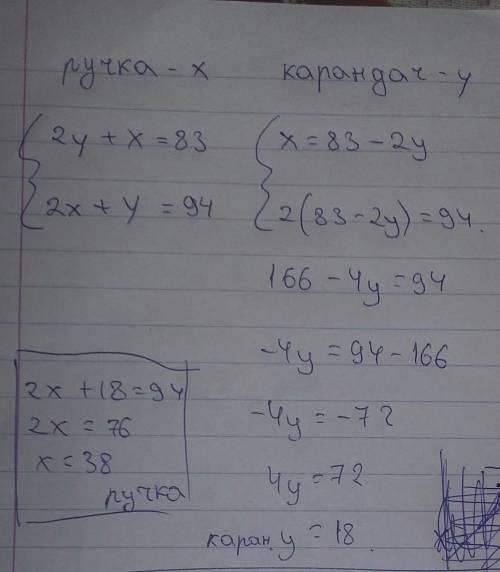 ручка - x
карандач - y
2y + x = 83
2x + y = 94
x = 83 - 2y
2(83 - 2y) = 94.
166 - 4y = 94
-4y = 94 - 166
-4y = -72
4y = 72
каран. y = 18.
2x + 18 = 94
2x = 76
x = 38
ручка